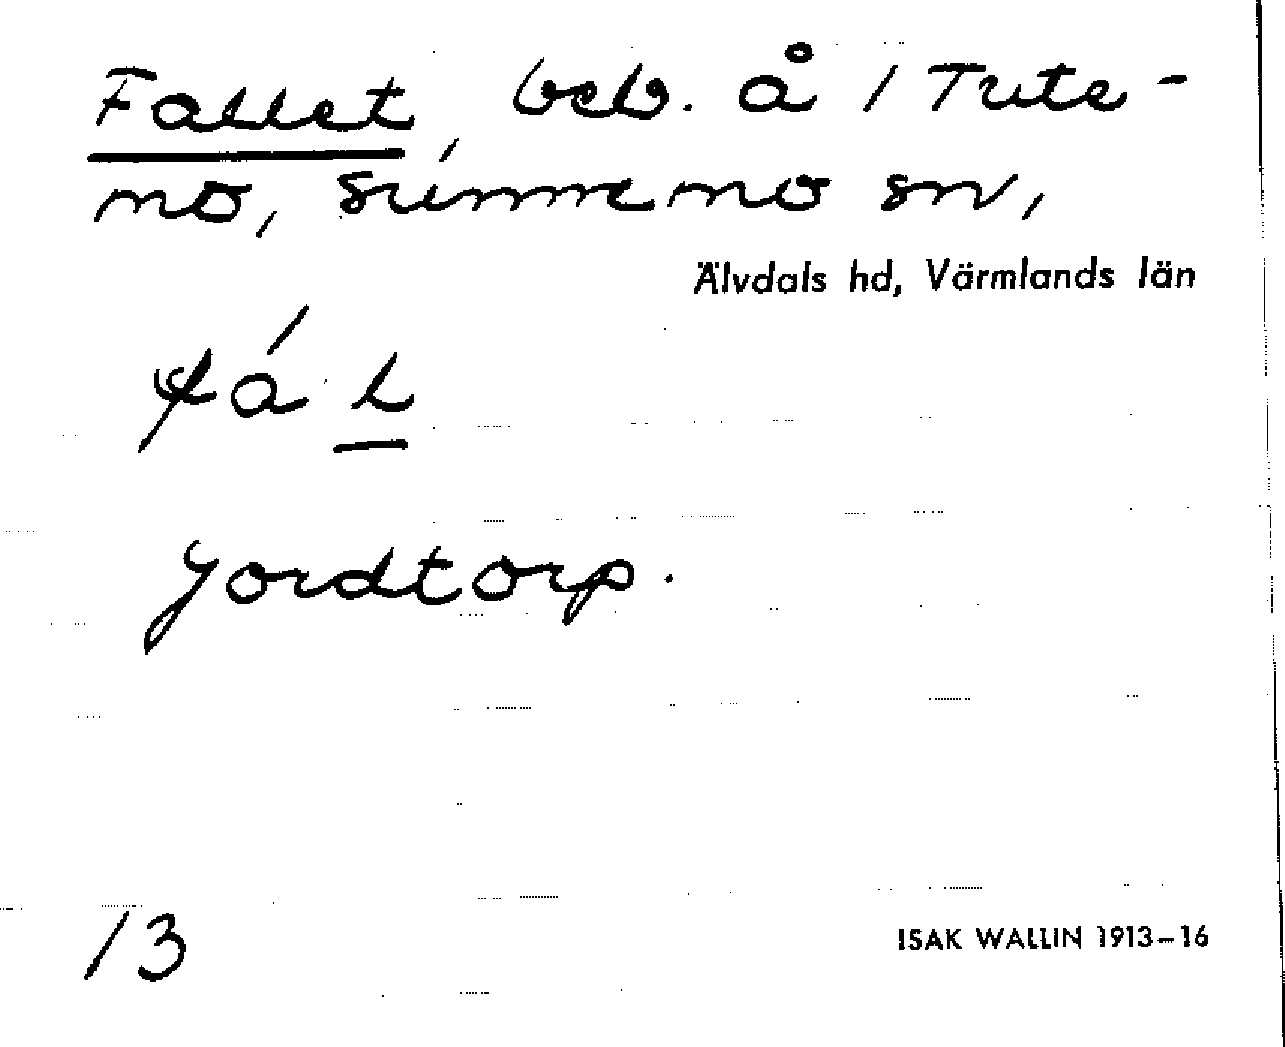 Fallet, beb. å 1 Tute-
mo, Sunnemo sn,
Älvdals hd, Värmlands län
Jordtorp.
13
ISAK WALLIN 1913–16